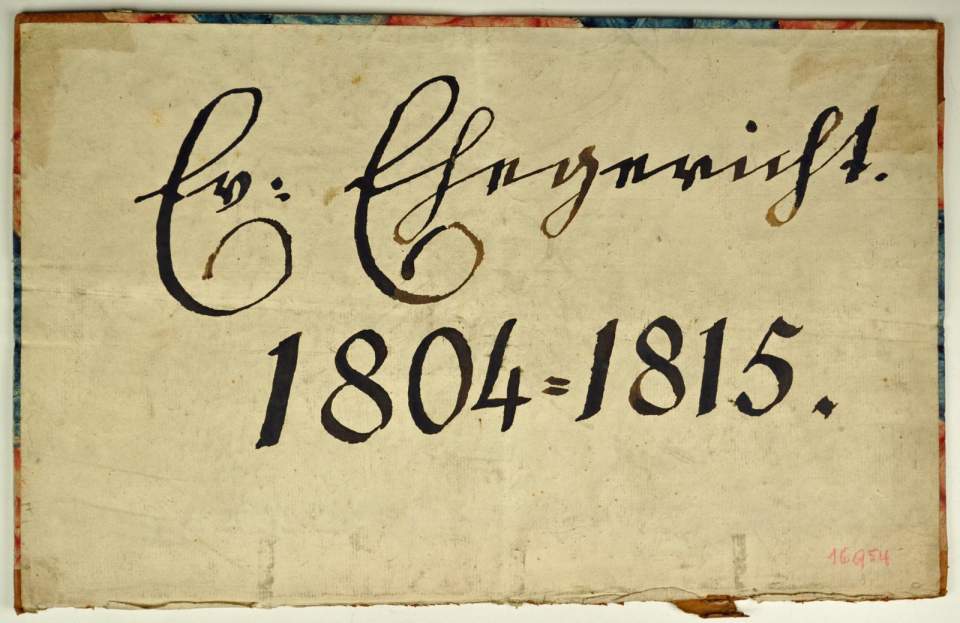 Ev: Ehegericht.
1804=1815.
16954